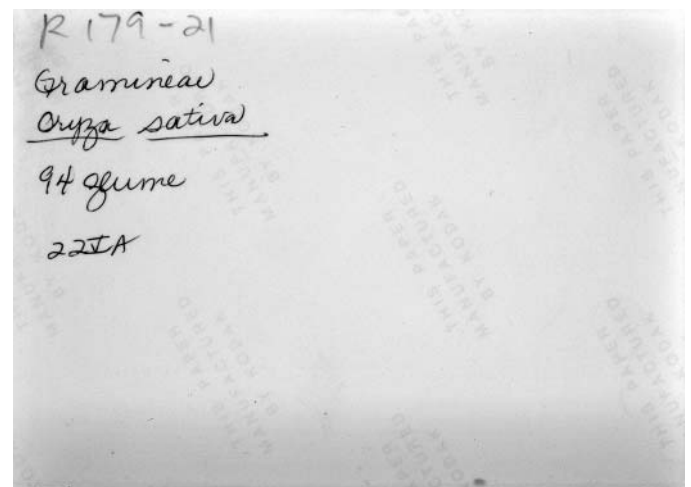 R 179-21
Gramineae
Oryza sativa
94 glume
22IA
THIS PAPER
MANUFACTURED
BY KODAK